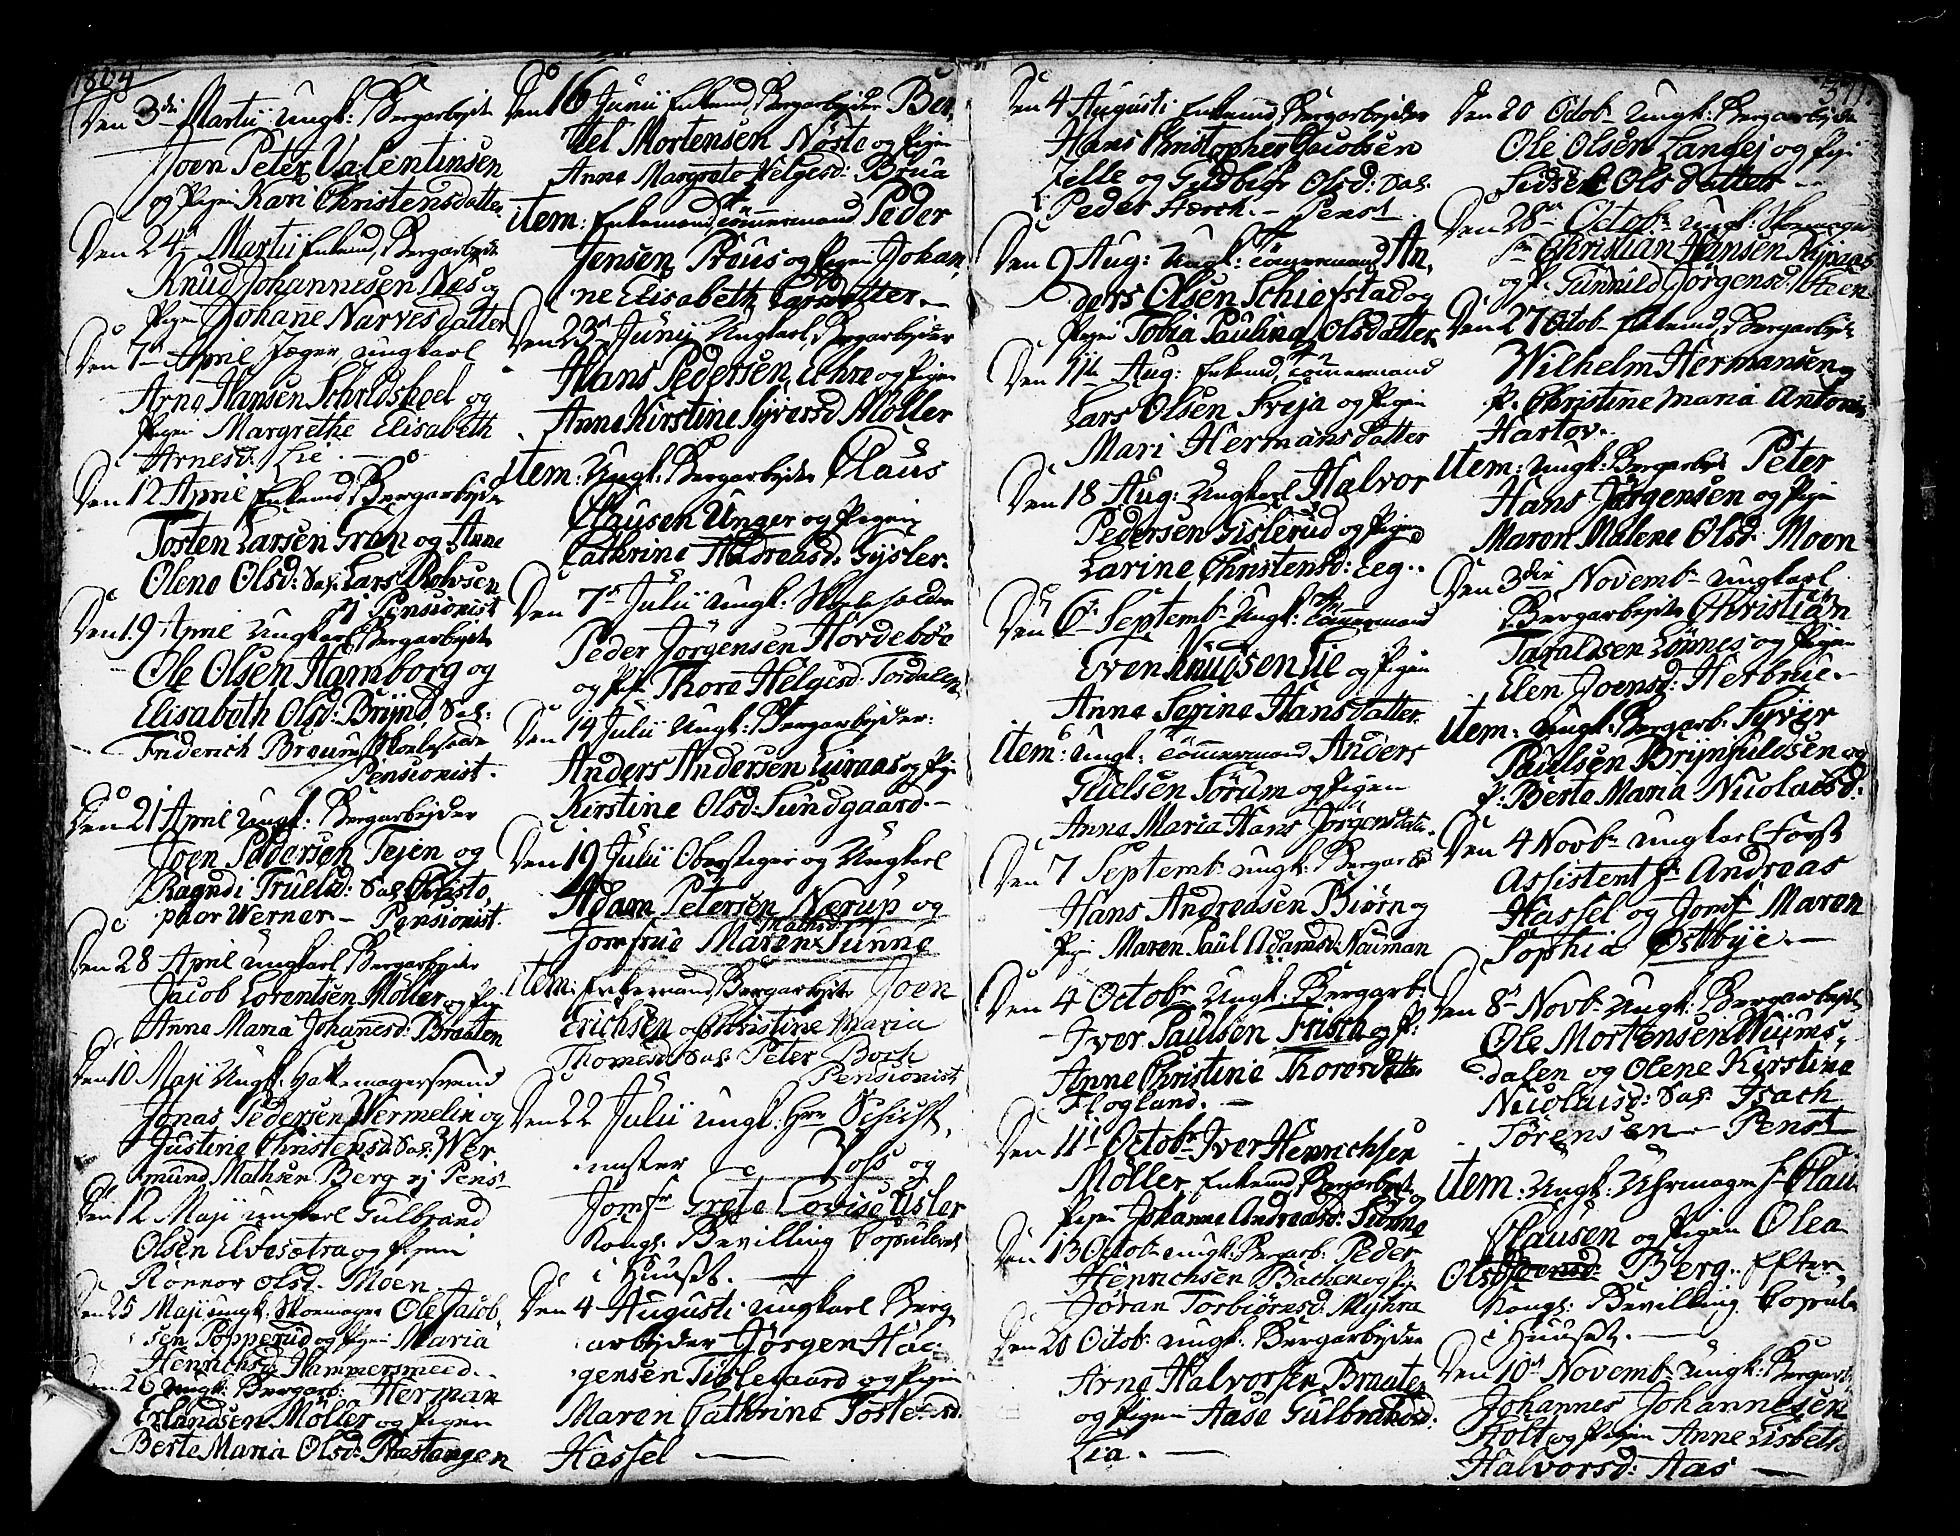 1804
Den 3die Martii Ungk: Bergarbejder
Joen Peter Valentinsen
og Pigen Kari Christensdatter
Den 24de Martii Enkemd, Bergarbejder
Knud Johannesen Næs og
Pigen Johane Narvesdatter
Den 7de April Jæger, ungkarl
Arne Hansen Schridskeel og
Pigen Margrethe Elisabeth
Arnesd: Lie.
Den 12 April Enkemd, Bergarbejder
Tosten Larsen Gran og Anne
Olena Olsd: Sal: Lars Rolvsen
Pensionist
Den 19 April Ungkarl Bergarbejder
Ole Olsen Hamborg og
Elisabeth Olsd: Brynd Sal:
Friderich Braun Skoleholder
Pensionist.
Den 21 April Ungk: Bergarbejder
Joen Pedersen Tejen og
Ragndi Truelsd: Sal: Christo,
phor Werner Pensionist.
Den 28 April Ungkarl Bergarbejder
Jacob Lorentsen Möller og Pig
Anne Maria Johanesd: Braaten
Den 10 Maji Ungk: Hattemagersvend
Jonas Pedersen Vermelin og
Justine Christensd: Sal: Wer
mund Mathsen Berg rj Penst
Den 12 Maji ungkarl Gulbrand
Olsen Elvesætra og Pigen
Rönnov Olsd. Moen.
Den 25 Maji ungk: Skoemager Ole Jacob,
sen Popperud og Pigen Maria
Henrichsd: Hammersmed.
Den 26 Ungk: Bergarb: Herman
Erlandsen Möller og Pigen
Berte Maria Olsd: Rastangen
Den 16 Junii Enkemd, Bergarbejder Ben,
tel Mortensen Nöste og Pigen
Anne Margrete Helgesd: Brua
item: Enkemand, Tömmermand Peder
Jensen Preus og Pigen Johan,
ne Elisabeth Larsdatter
Den 23de Junii Ungkarl, Bergarbejder
Hans Pedersen Echra og Pigen
Anne Kirstine Syversd Möller
item: Ungk: Bergarbejder Claus
Clausen Unger og Pigen
Cathrine Andreasd: Gysler.
Den 7de Julii Ungk: Skoleholder
Peder Jörgensen Hovdeböe
og Pige Thore Helgesd: Tordalen
Den 14 Julii Ungk: Bergarbejder:
Anders Andersen Luraas og Pige
Kirstine Olsd: Sundgaard.
Den 19 Julii Oberstiger og Ungkarl
Adam Petersen Nerup og
Mathsd:
Jomfrue Maren Tunne
item: Enkemand, Bergarbejder Joen
Erichsen og Christine Maria
Thomesd: Sal: Peter Boch
Pensionist
Den 22 Julii Ungk: Hrr Schicht,
mester Voss og
Jomfr Grete Lovise Usler
Kongl: Bevilling Copuleret
i Huuset.
Den 4 Augusti Ungkarl Berg
arbejder Jörgen Haa,
gensen Tislegaard og Pigen
Maren Cathrine Tostensd.
Hassel
Den 4 Augusti Enkemd, Bergarbejder
Hans Christopher Jacobsen
Zelle og Gudbior Olsd: Sal:
Peder Hærch. Penst.
Den 9 Aug: Ungk: Tömermand An,
ders Olsen Schiefstad og
Pigen Tobia Paulina Olsdatter
Den 11te Aug: Enkemd, Tömermand
Lars Olsen Freja og Pigen
Mari Hermansdatter
Den 18 Aug: Ungkarl Halvor
Pedersen Gislerud og Pigen
Larine Christensd: Eeg.
Den 6te Septembr Ungk: Tömmermand
Even Knudsen Lie og Pigen
Anne Serine Hansdatter
item: Ungk: Tömmermand Anders
Gulsen Söram og Pigen
Anne Maria Hans Jörgensdatter.
Den 7 Septemb: ungk: Bergarb
Hans Andreasen Biörn og
Pige Maren Paul Adamsd: Nauman
Den 4 Octobr Ungk: Bergarb:
Iver Paulsen Frisra og P:
Anne Christine Thoresdatter
Flogland.
Den 11te Octobr Iver Henrichsen
Möller Enkemd, Bergarbejd: og
Pigen Johanne Andreasd: Sionne
Den 13 Octob: ungk: Bergarb: Peder
Henrichsen Bachen og Pig
Jöran Torbiörnsd: Myhra
Den 20 Octob: ungk: Bergarbejder
Arne Halvorsen Braaten
og Pigen Aase Gulbrandsd:
Lia.
371.
Den 20 Octob: Ungk: Bergarbejder
Ole Olsen Langej og Pige
Sidsel Olsdatter
Den 28de Octob: ungk: Skoemager
Christian Hansen
og P: Gunnild Jörgensd:
Den 27 Octob: Enkemd, Bergarbejder
Wilhelm Hermansen og
P: Christine Maria Antoni
Hartov.
item: Ungk: Bergarbej Peter
Hans Jörgensen og Pigen
Maren Malene Olsd: Moen
Den 3die Novemb: ungkarl
Bergarbejder Christian
Taraldsen Lönnes og Pigen
Elen Joensd: Herbrue.
item: Ungk: Bergarb: Syver
Paulsen Brynfuldsen og
P: Berte Maria Nicolaisd:
Den 4 Novb: ungkarl Forst
Assistent Hr Andreas
Hassel og Jomf: Maren
Sophia Östbye.
Den 8de Novb: Ungk: Bergarbejd
Ole Mortensen Wiims,
dalen og Olene Kirstine
Nicolaisd: Sal: Isach
Törensen Penst
item: Ungk: Uhrmager Hr Clau
Clausen og Pigen Olea
Olsd: Berg. Efter
Kongl: Bevilling Copul:
i Huuset.
Den 10de Novemb: ungk: Bergarb
Johannes Johannesen
Holt og Pigen Anne Lisbeth
Halvorsd: Aas